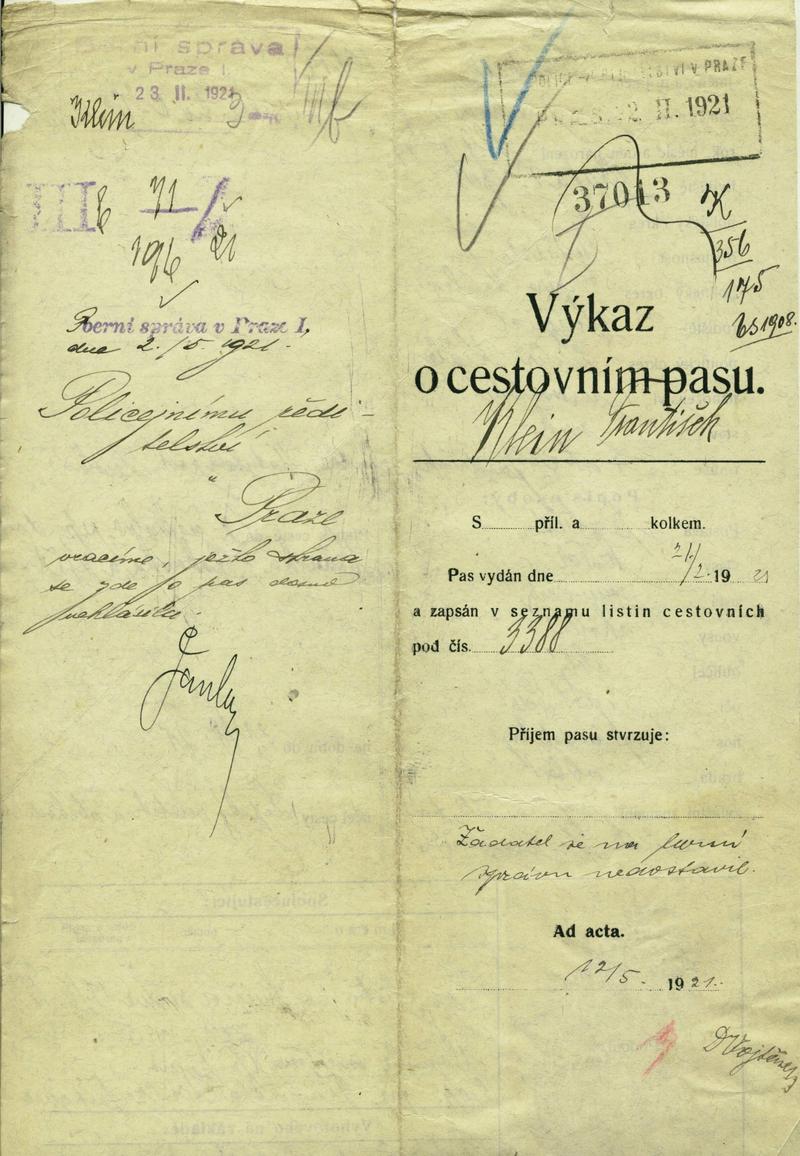 Berní správa
v Praze I.
23 II. 1921
Klein
III
71
196
Berní správa v Praze I.
dne 2./5. 1921.
Policejnímu ředi-
telství
v Praze
vracíme, ježto strana
se zde o pas
nehlásila.
POLICEJNÍ ŘEDITELSTVÍ V PRAZE
II. 1921
37013
K
356
175
1908.
Výkaz
o cestovním pasu.
Klein František
S příl. a kolkem.
Pas vydán dne 21/2. 19 21
a zapsán v seznamu listin cestovních
pod čís. 3388
Příjem pasu stvrzuje:
Žadatel se na berní
správu nedostavil.
Ad acta.
12/5. 1921.